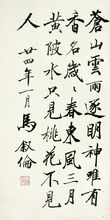 蒼山雲雨逐明神唯有
香名歲〻春東風三月
黄陂水只見桃花不見
人 廿四年一月 馬叙倫